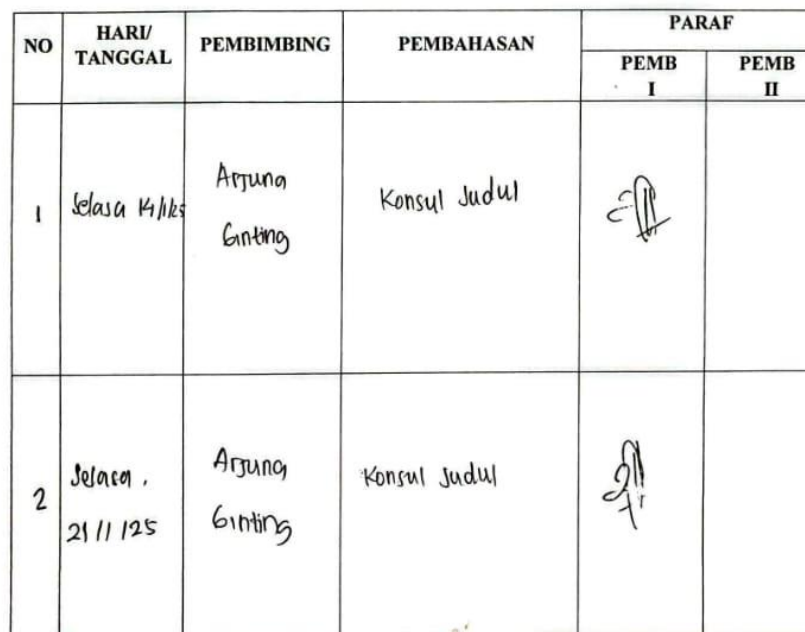 NO HARI/ TANGGAL PEMBIMBING PEMBAHASAN PARAF
PEMB I PEMB II
1 Selasa 14/1/25 Arjuna Ginting Konsul Judul
2 Selasa. 21/1/25 Arjuna Ginting Konsul Judul